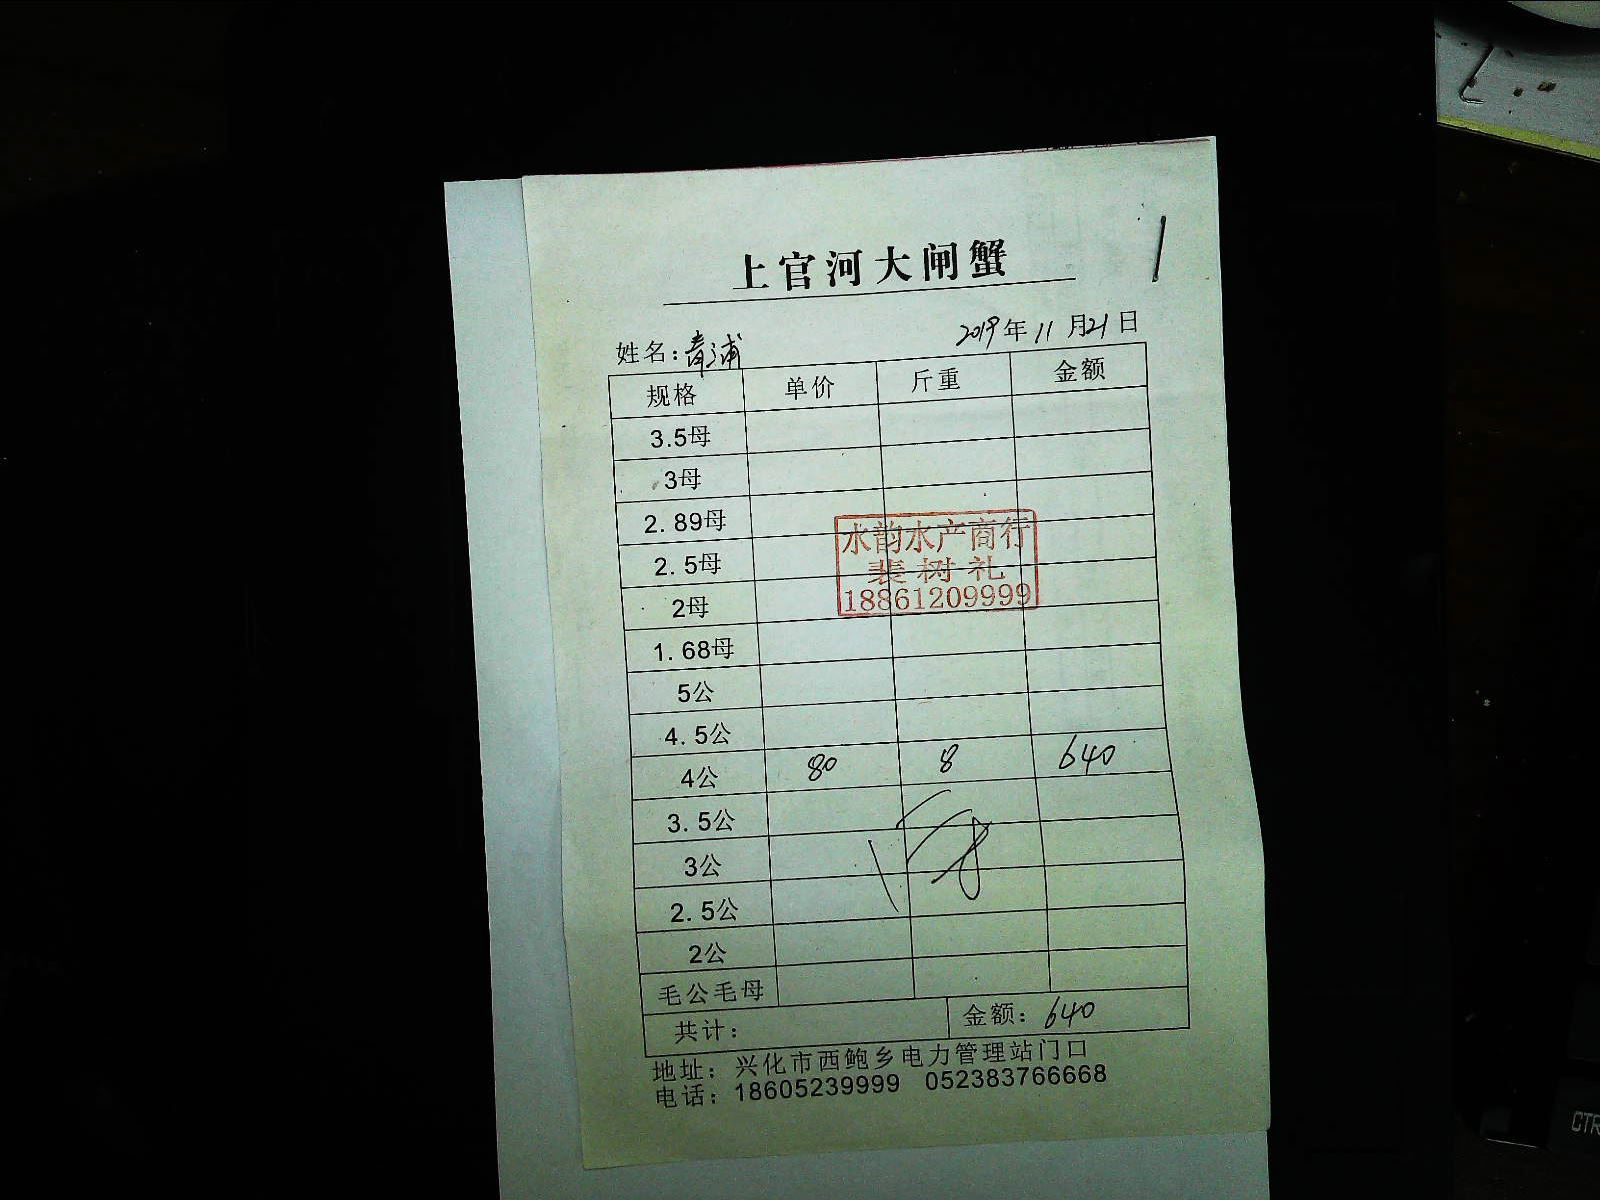 上官河大闸蟹
姓名：青浦 2019年11月21日
规格 单价 斤重 金额
3.5母
3母
2.89母
2.5母
2母
1.68母
5公
4.5公
4公 80 8 640
3.5公
3公
2.5公
2公
毛公毛母
共计： 金额：640
地址：兴化市西鲍乡电力管理站门口
电话：18605239999 052383766668
水韵水产商行
裴树礼
18861209999